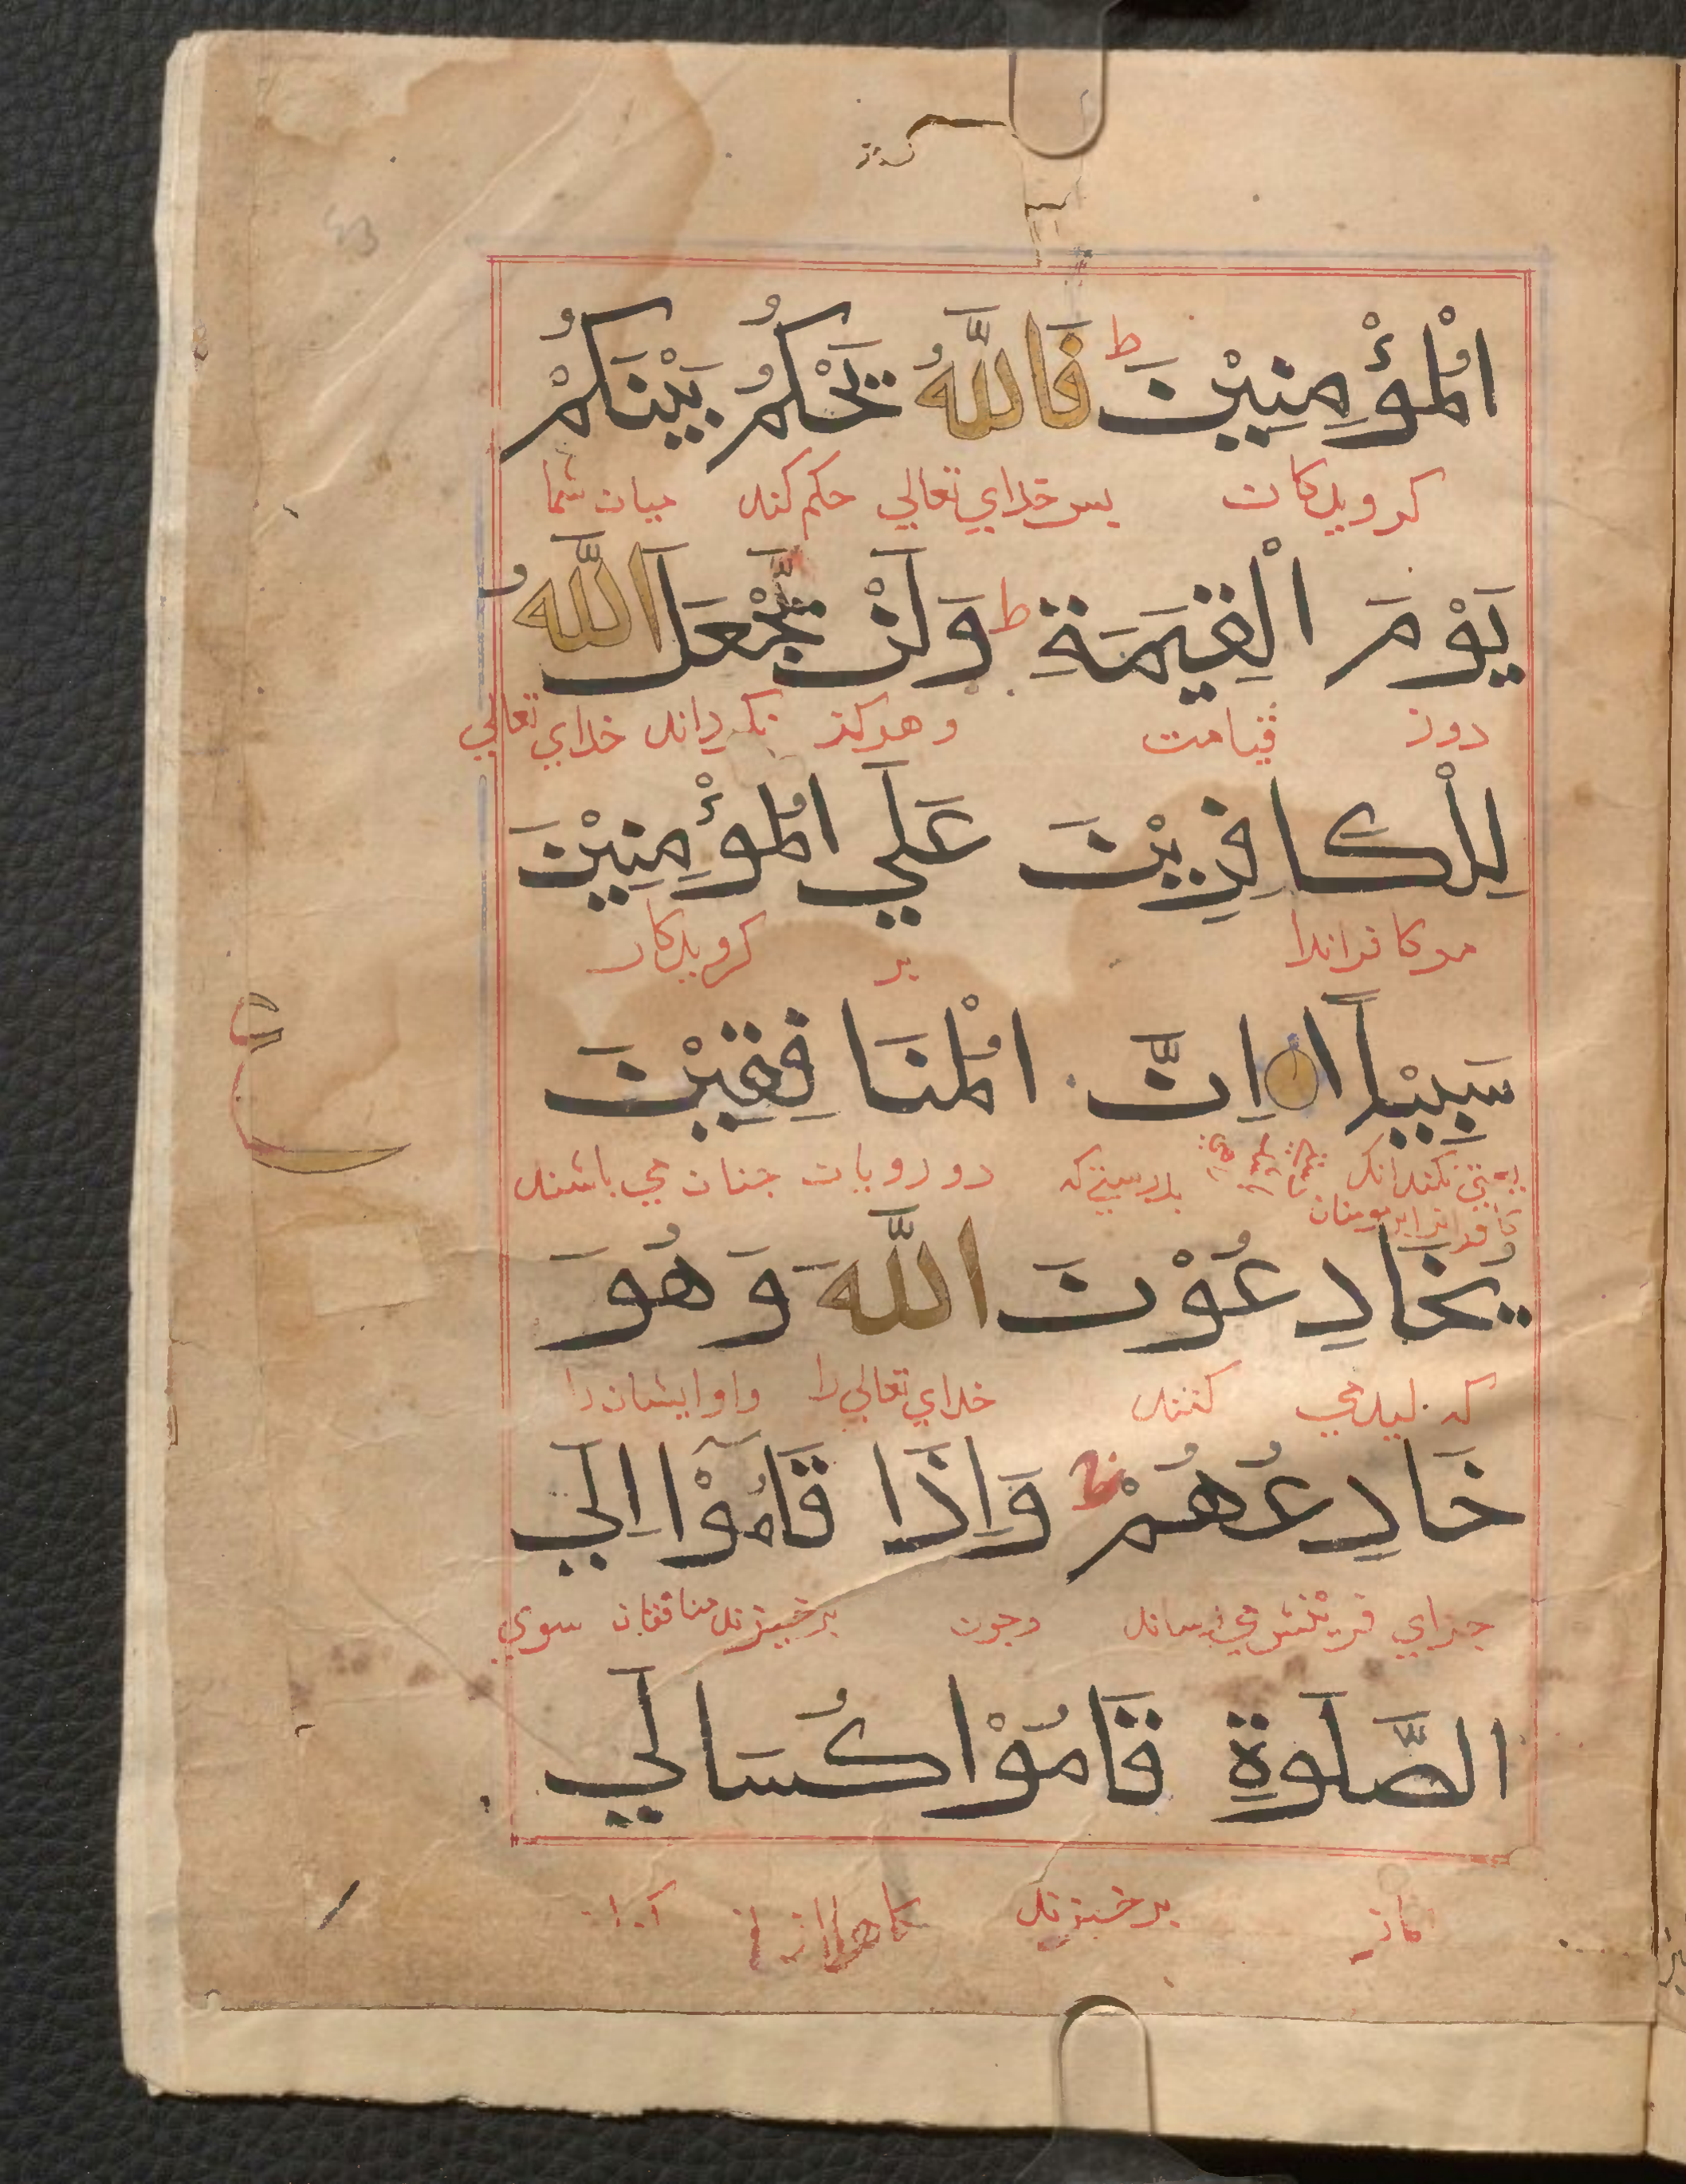 الْمُؤْمِنِيْنَ ط فَاللّٰهُ يَحْكُمُ بَيْنَكُمْ
كرويدكان بس خداي تعالي حكم كند ميان شما
يَوْمَ الْقِيٰمَةِ ط وَلَنْ يَّجْعَلَ اللّٰهُ
روز قيامت و هركز نكرداند خداي تعالي
لِلْكافِرِيْنَ عَلَي الْمُؤْمِنِيْنَ
مر كافرانرا بر كرويدكان
سَبِيْلًا اِنَّ الْمُنَافِقِيْنَ
بدرستي كه دورويان جنان مي باشند
كافرانرا بر مومنان
يُخَادِعُوْنَ اللّٰهَ وَهُوَ
كه مي كنند خداي تعالي را و او ايشان را
خَادِعُهُمْ ط وَاِذَا قَامُوْٓا اِلَي
جزاي فريفتن مي رساند و جون برخيزند منافقان سوي
الصَّلٰوةِ قَامُوْا كُسَالٰي
نماز برخيزند كاهلان